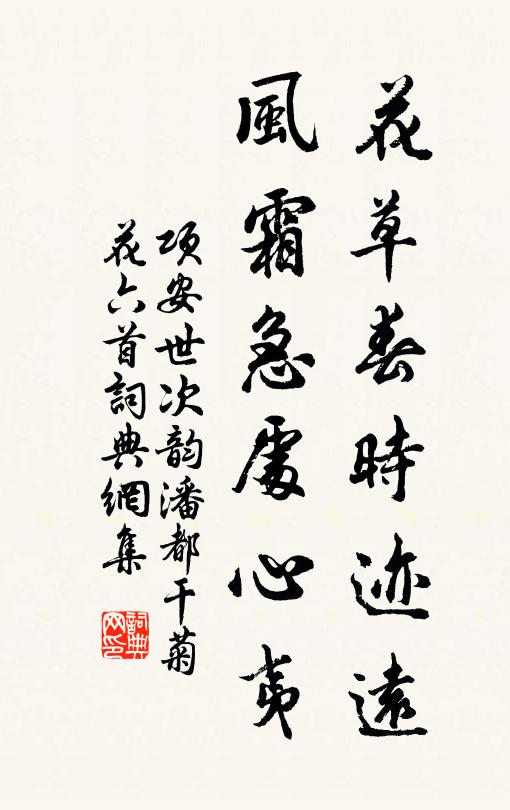 花草春時迹遠
風霜急處心夷
項安世次韵潘都干菊
花六首詞典網集
詞典
网印